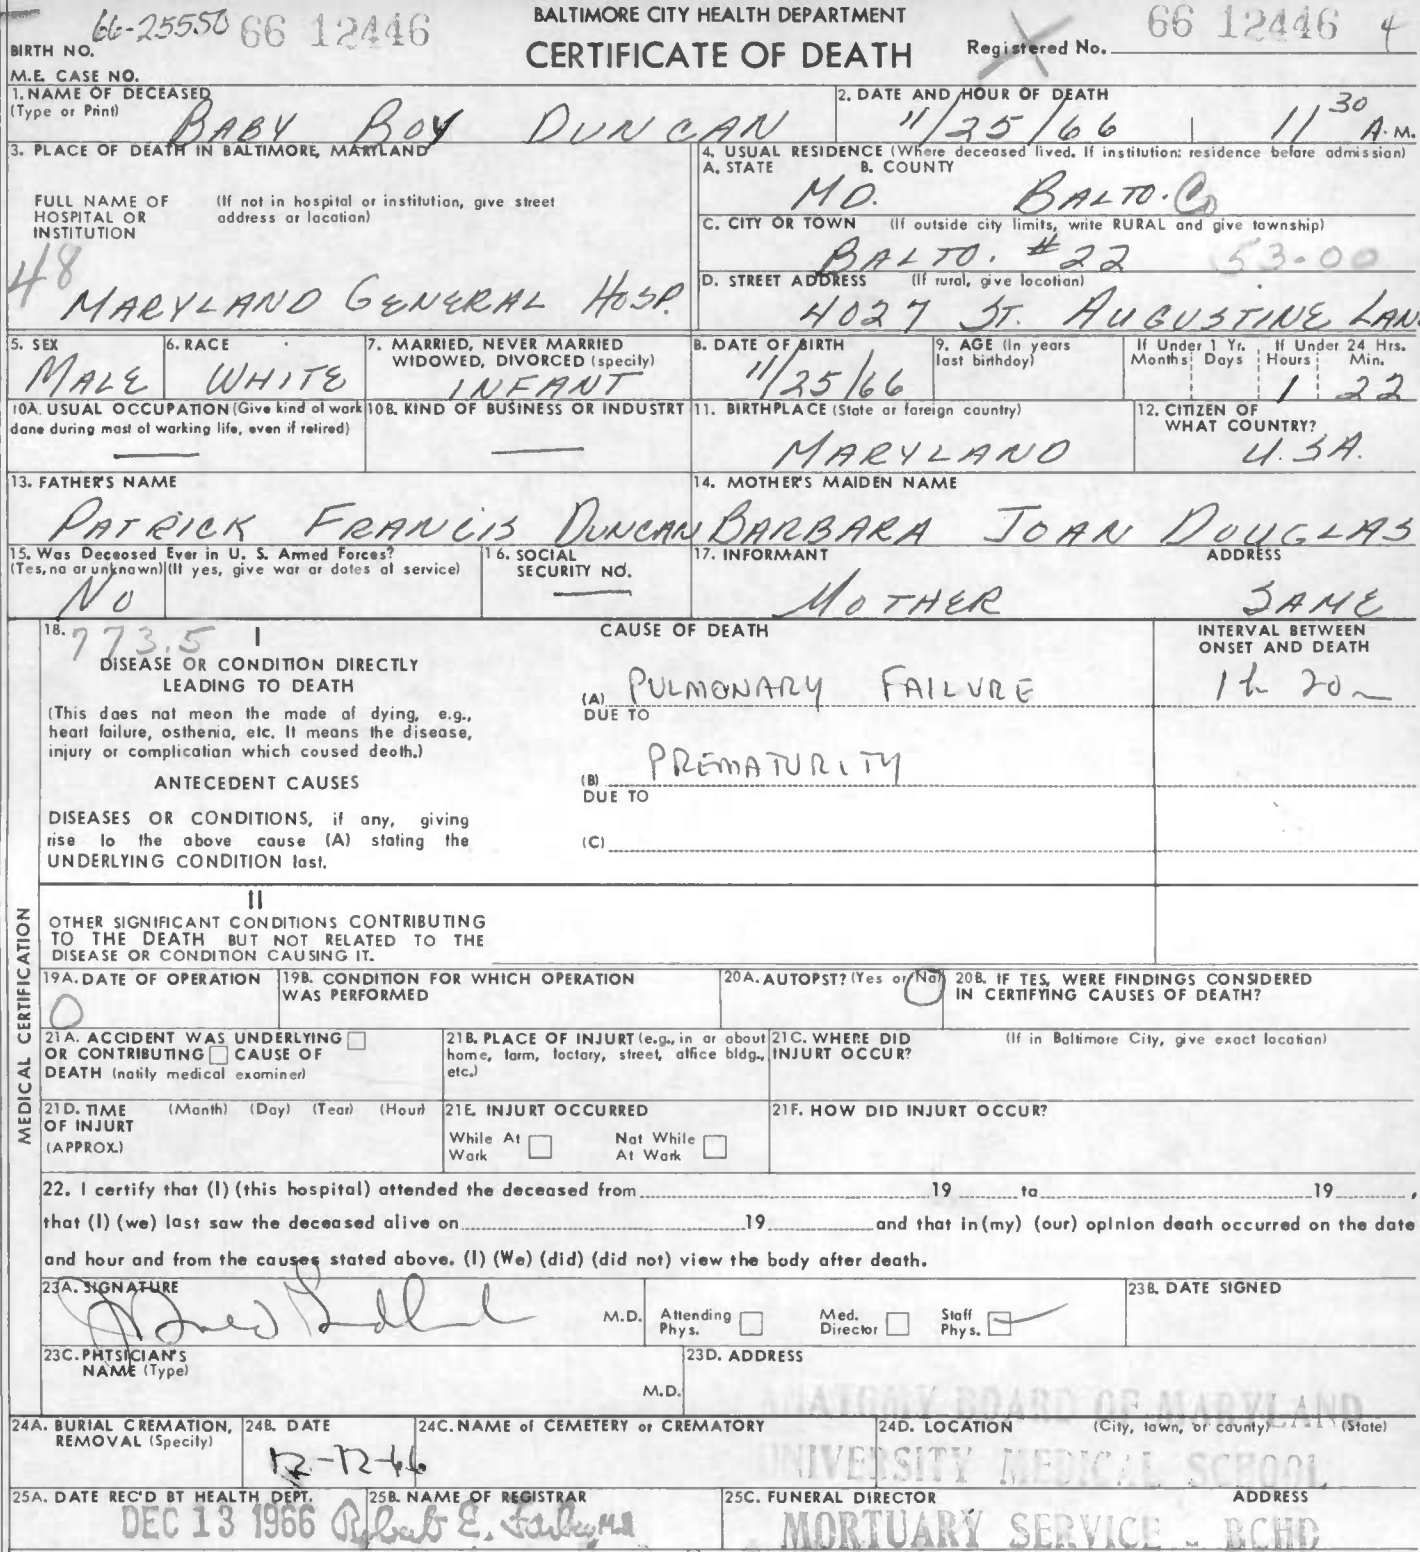 66-25550 66 12446
BALTIMORE CITY HEALTH DEPARTMENT
66 12446 4
BIRTH NO.
CERTIFICATE OF DEATH
Registered No.
M.E. CASE NO.
1. NAME OF DECEASED
(Type or Print)
BABY BOY DUNCAN
2. DATE AND HOUR OF DEATH
11/25/66 11 30 A.M.
3. PLACE OF DEATH IN BALTIMORE, MARYLAND
FULL NAME OF HOSPITAL OR INSTITUTION
(If not in hospital or institution, give street address or location)
48
MARYLAND GENERAL HOSP.
4. USUAL RESIDENCE (Where deceased lived. If institution: residence before admission)
A. STATE B. COUNTY
MD. BALTO. Co
C. CITY OR TOWN (If outside city limits, write RURAL and give township)
BALTO. #22 53-00
D. STREET ADDRESS (If rural, give location)
4027 ST. AUGUSTINE LAN
5. SEX
MALE
6. RACE
WHITE
7. MARRIED, NEVER MARRIED
WIDOWED, DIVORCED (specify)
INFANT
8. DATE OF BIRTH
11/25/66
9. AGE (In years
last birthday)
If Under 1 Yr. If Under 24 Hrs.
Months Days Hours Min.
1 22
10A. USUAL OCCUPATION (Give kind of work
done during most of working life, even if retired)
10B. KIND OF BUSINESS OR INDUSTRY
11. BIRTHPLACE (State or foreign country)
MARYLAND
12. CITIZEN OF
WHAT COUNTRY?
U.S.A.
13. FATHER'S NAME
PATRICK FRANCIS DUNCAN
14. MOTHER'S MAIDEN NAME
BARBARA JOAN DOUGLAS
15. Was Deceased Ever in U. S. Armed Forces?
(Yes, no or unknown) (If yes, give war or dates of service)
NO
16. SOCIAL
SECURITY NO.
17. INFORMANT ADDRESS
MOTHER SAME
18. 773.5 I
DISEASE OR CONDITION DIRECTLY
LEADING TO DEATH
(This does not mean the mode of dying, e.g.,
heart failure, asthenia, etc. It means the disease,
injury or complication which caused death.)
ANTECEDENT CAUSES
DISEASES OR CONDITIONS, if any, giving
rise to the above cause (A) stating the
UNDERLYING CONDITION last.
CAUSE OF DEATH
INTERVAL BETWEEN
ONSET AND DEATH
(A) PULMONARY FAILURE 1h 20m
DUE TO
(B) PREMATURITY
DUE TO
(C)
MEDICAL CERTIFICATION
II
OTHER SIGNIFICANT CONDITIONS CONTRIBUTING
TO THE DEATH BUT NOT RELATED TO THE
DISEASE OR CONDITION CAUSING IT.
19A. DATE OF OPERATION
0
19B. CONDITION FOR WHICH OPERATION
WAS PERFORMED
20A. AUTOPSY? (Yes or No)
20B. IF YES, WERE FINDINGS CONSIDERED
IN CERTIFYING CAUSES OF DEATH?
21A. ACCIDENT WAS UNDERLYING
OR CONTRIBUTING CAUSE OF
DEATH (notify medical examiner)
21B. PLACE OF INJURY (e.g., in or about
home, farm, factory, street, office bldg.,
etc.)
21C. WHERE DID
INJURY OCCUR?
(If in Baltimore City, give exact location)
21D. TIME (Month) (Day) (Year) (Hour)
OF INJURY
(APPROX.)
21E. INJURY OCCURRED
While At Work
Not While At Work
21F. HOW DID INJURY OCCUR?
22. I certify that (I) (this hospital) attended the deceased from 19 to 19 ,
that (I) (we) last saw the deceased alive on 19 and that in (my) (our) opinion death occurred on the date
and hour and from the causes stated above. (I) (We) (did) (did not) view the body after death.
23A. SIGNATURE
M.D.
Attending Phys.
Med. Director
Staff Phys.
23B. DATE SIGNED
23C. PHYSICIAN'S
NAME (Type)
M.D.
23D. ADDRESS
ANATOMY BOARD OF MARYLAND
24A. BURIAL CREMATION,
REMOVAL (Specify)
24B. DATE
12-12-66
24C. NAME of CEMETERY or CREMATORY
24D. LOCATION (City, town, or county) (State)
UNIVERSITY MEDICAL SCHOOL
25A. DATE REC'D BY HEALTH DEPT.
DEC 13 1966
25B. NAME OF REGISTRAR
Robert E. Farber M.D.
25C. FUNERAL DIRECTOR ADDRESS
MORTUARY SERVICE - BCHD